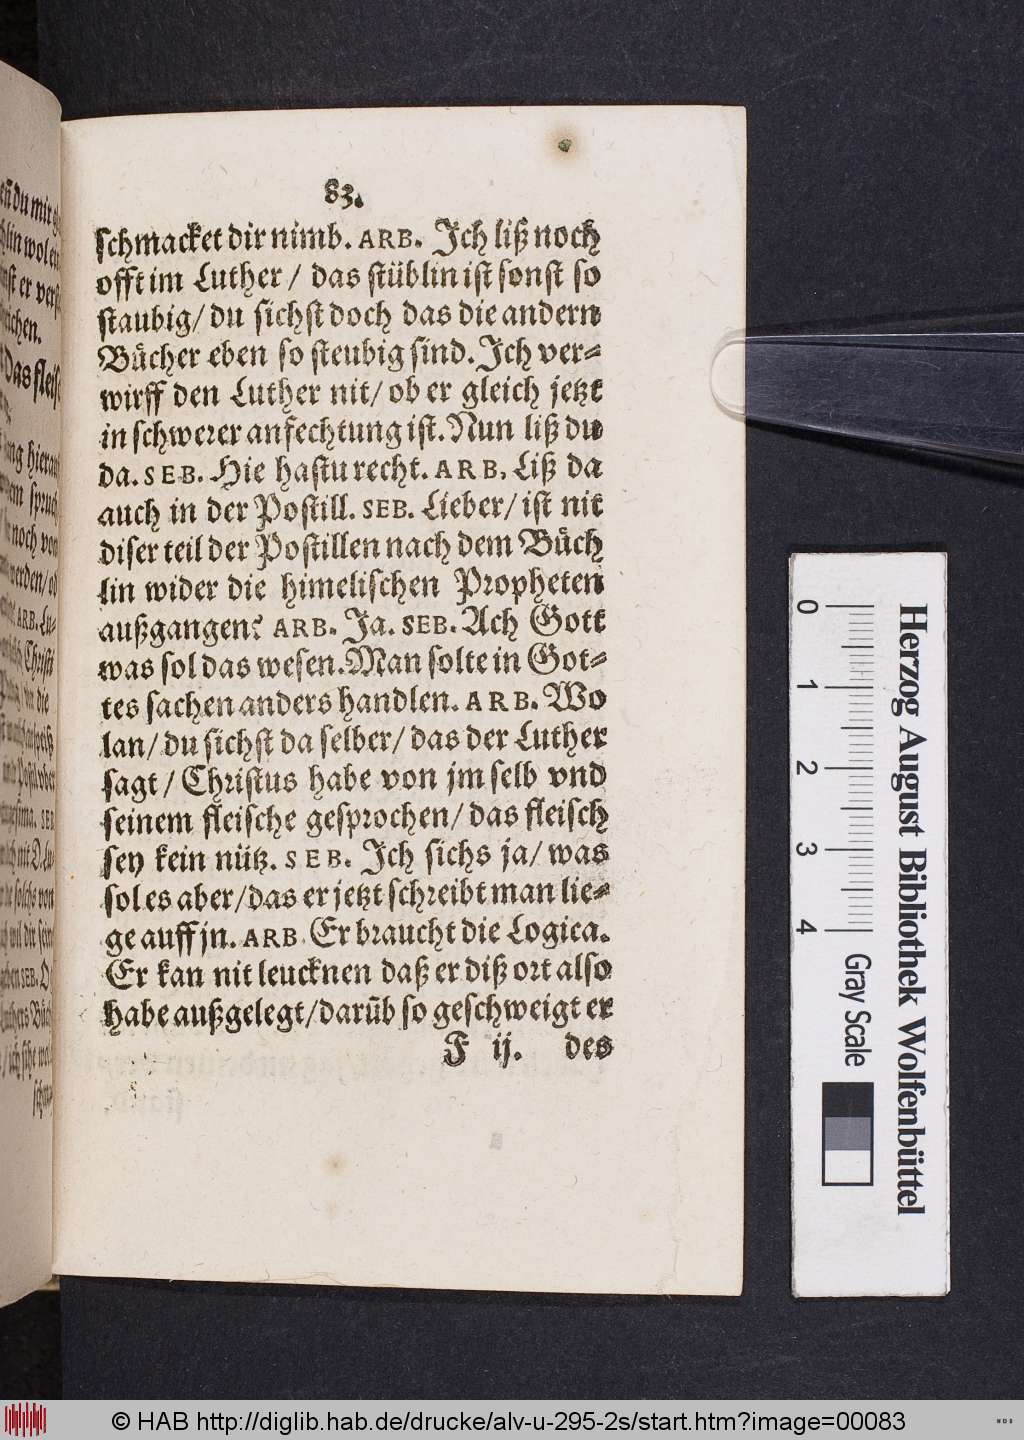 83.
schmacket dir nimb. ARB. Jch liß noch
offt im Luther / das stüblin ist sonst so
staubig/ du sichst doch das die andern
Bücher eben so steubig sind. Jch ver-
wirff den Luther nit/ ob er gleich jetzt
in schwerer anfechtung ist. Nun liß du
da. SEB. Hie hastu recht. ARB. Liß da
auch in der Postill. SEB. Lieber/ ist nit
diser teil der Postillen nach dem Büch
lin wider die himelischen Propheten
außgangen? ARB. Ja. SEB. Ach Gott
was sol das wesen. Man solte in Got-
tes sachen anders handlen. ARB. Wo
lan/ du sichst da selber/ das der Luther
sagt / Christus habe von jm selb vnd
seinem fleische gesprochen/ das fleisch
sey kein nütz. SEB. Jch sichs ja/ was
sol es aber/ das er jetzt schreibt man lie-
ge auff jn. ARB. Er braucht die Logica.
Er kan nit leucknen daß er diß ort also
habe außgelegt/ darūb so geschweigt er
F ij. des
Herzog August Bibliothek Wolfenbüttel
0 1 2 3 4
Gray Scale
© HAB http://diglib.hab.de/drucke/alv-u-295-2s/start.htm?image=00083